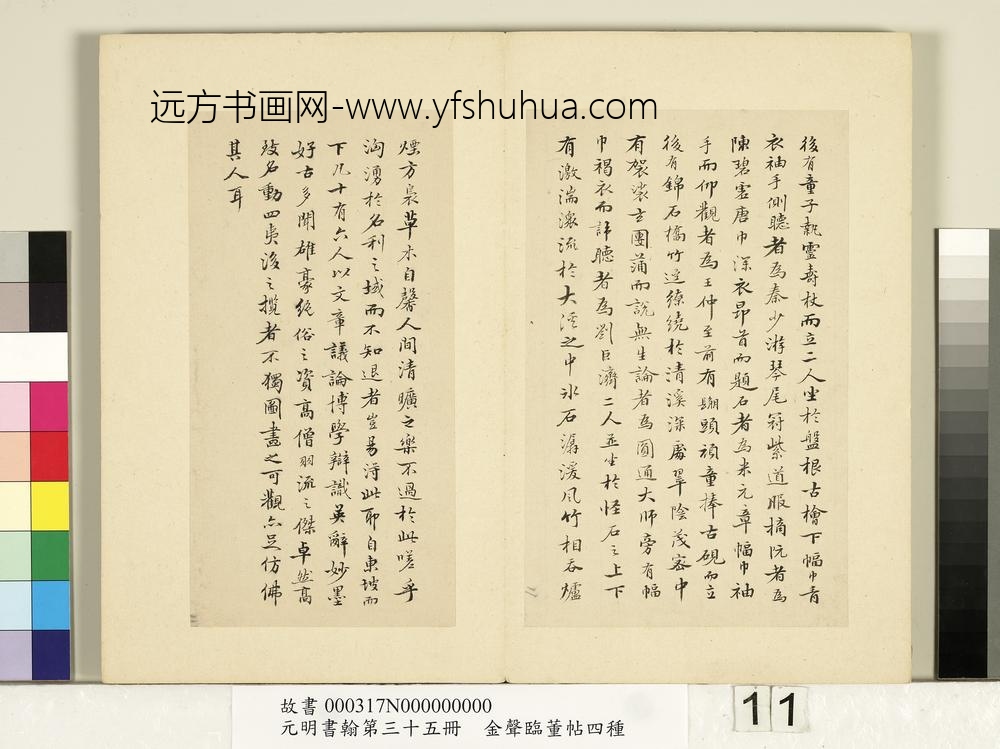 远方书画网-www.yfshuhua.com
後有童子執靈壽杖而立二人坐於盤根古檜下幅巾青
衣袖手側聽者為秦少游琴尾冠紫道服摘阮者為
陳碧虛唐巾深衣昂首而題石者為米元章幅巾袖
手而仰觀者為王仲至前有鬅頭頑童捧古硯而立
後有錦石橋竹逕繚繞於清溪深處翠陰茂密中
有袈裟坐團蒲而說無生論者為圓通大師旁有幅
巾褐衣而諦聽者為劉巨濟二人並坐於怪石之上下
有激湍潨流於大溪之中水石潺湲風竹相吞爐
煙方裊草木自馨人間清曠之樂不過於此嗟乎
洶湧於名利之域而不知退者豈易得此耶自東坡而
下凡十有六人以文章議論博學辯識英辭妙墨
好古多聞雄豪絕俗之資高僧羽流之傑卓然高
致名動四夷後之攬者不獨圖畫之可觀亦足仿佛
其人耳
故書 000317N000000000
元明書翰第三十五冊 金聲臨董帖四種
11